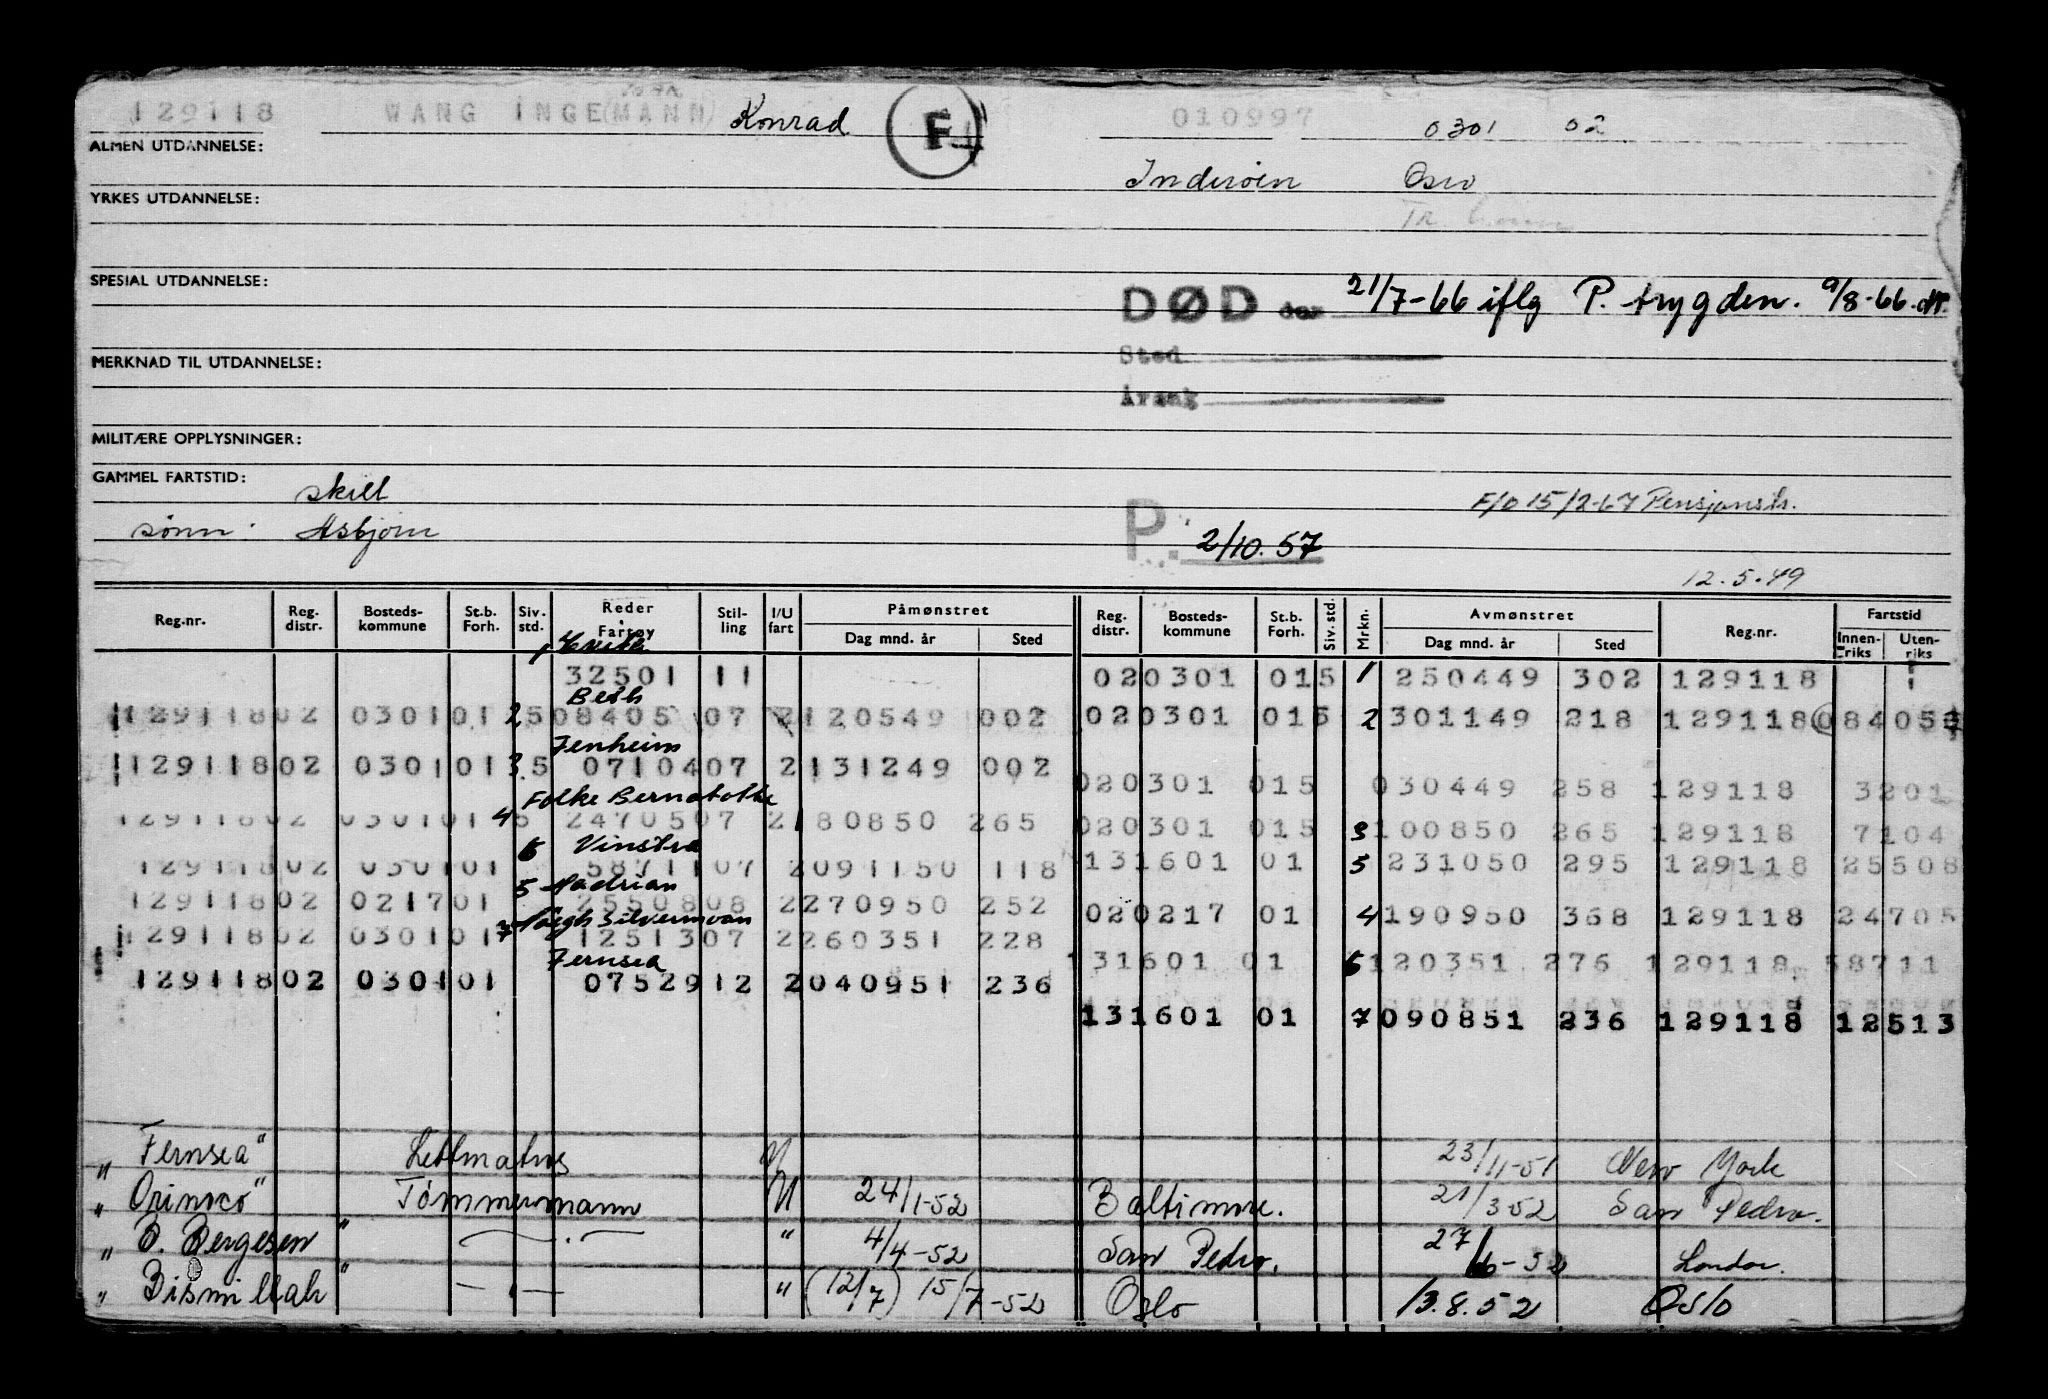 129118 WANG INGE(MANN) Konrad F 010997 0301 02
ALMEN UTDANNELSE:
Inderöen Oslo
YRKES UTDANNELSE:
SPESIAL UTDANNELSE:
DØD den 21/7-66 iflg P. trygden. 9/8-66.
Sted
Årsak
MERKNAD TIL UTDANNELSE:
MILITÆRE OPPLYSNINGER:
GAMMEL FARTSTID:
skilt
F/O 15/2-67 Pensjonstr.
sønn: Asbjørn
P. 2/10.57
12.5.49
Reg.nr. Reg. distr. Bosteds- kommune St.b. Forh. Siv. std. Reder Fartøy Stil- ling I/U fart Påmønstret Reg. distr. Bosteds- kommune St.b. Forh. Siv. std. Mrkn. Avmønstret Reg.nr. Fartstid
Dag mnd. år Sted Dag mnd. år Sted Innen- riks Uten- riks
1
32501 11 020301 015 1 250449 302 129118
Beth
129118 02 0301 01 2 5 08405 07 2 120549 002 020301 015 2 301149 218 129118 08405
Fenheim
129118 02 0301 01 3 5 07104 07 2 131249 002 020301 015 030449 258 129118 3201
Folke Bernadotte
129118 02 0301 01 4 5 24705 07 2 180850 265 020301 015 3 100850 265 129118 7104
6 Vinstra
129118 02 0301 01 58711 07 2 091150 118 131601 01 5 231050 295 129118 25508
5 Hadrian
129118 02 0217 01 25508 08 2 270950 252 020217 01 4 190950 368 129118 24705
7 Høegh Silvermoon
129118 02 0301 01 12513 07 2 260351 228 131601 01 6 120351 276 129118 58711
Fernsea
129118 02 0301 01 07529 12 2 040951 236
131601 01 7 090851 236 129118 12513
„Fernsea" Lettmatros U 23/11-51 New York
„Orinoco" Tømmermann U 24/1-52 Baltimore. 21/3 52 San Pedro.
„B. Bergesen" — " — " 4/4-52 San Pedro. 27/6-52 London.
„Bismillah" — " — " (12/7) 15/7-52 Oslo 13.8.52 Oslo